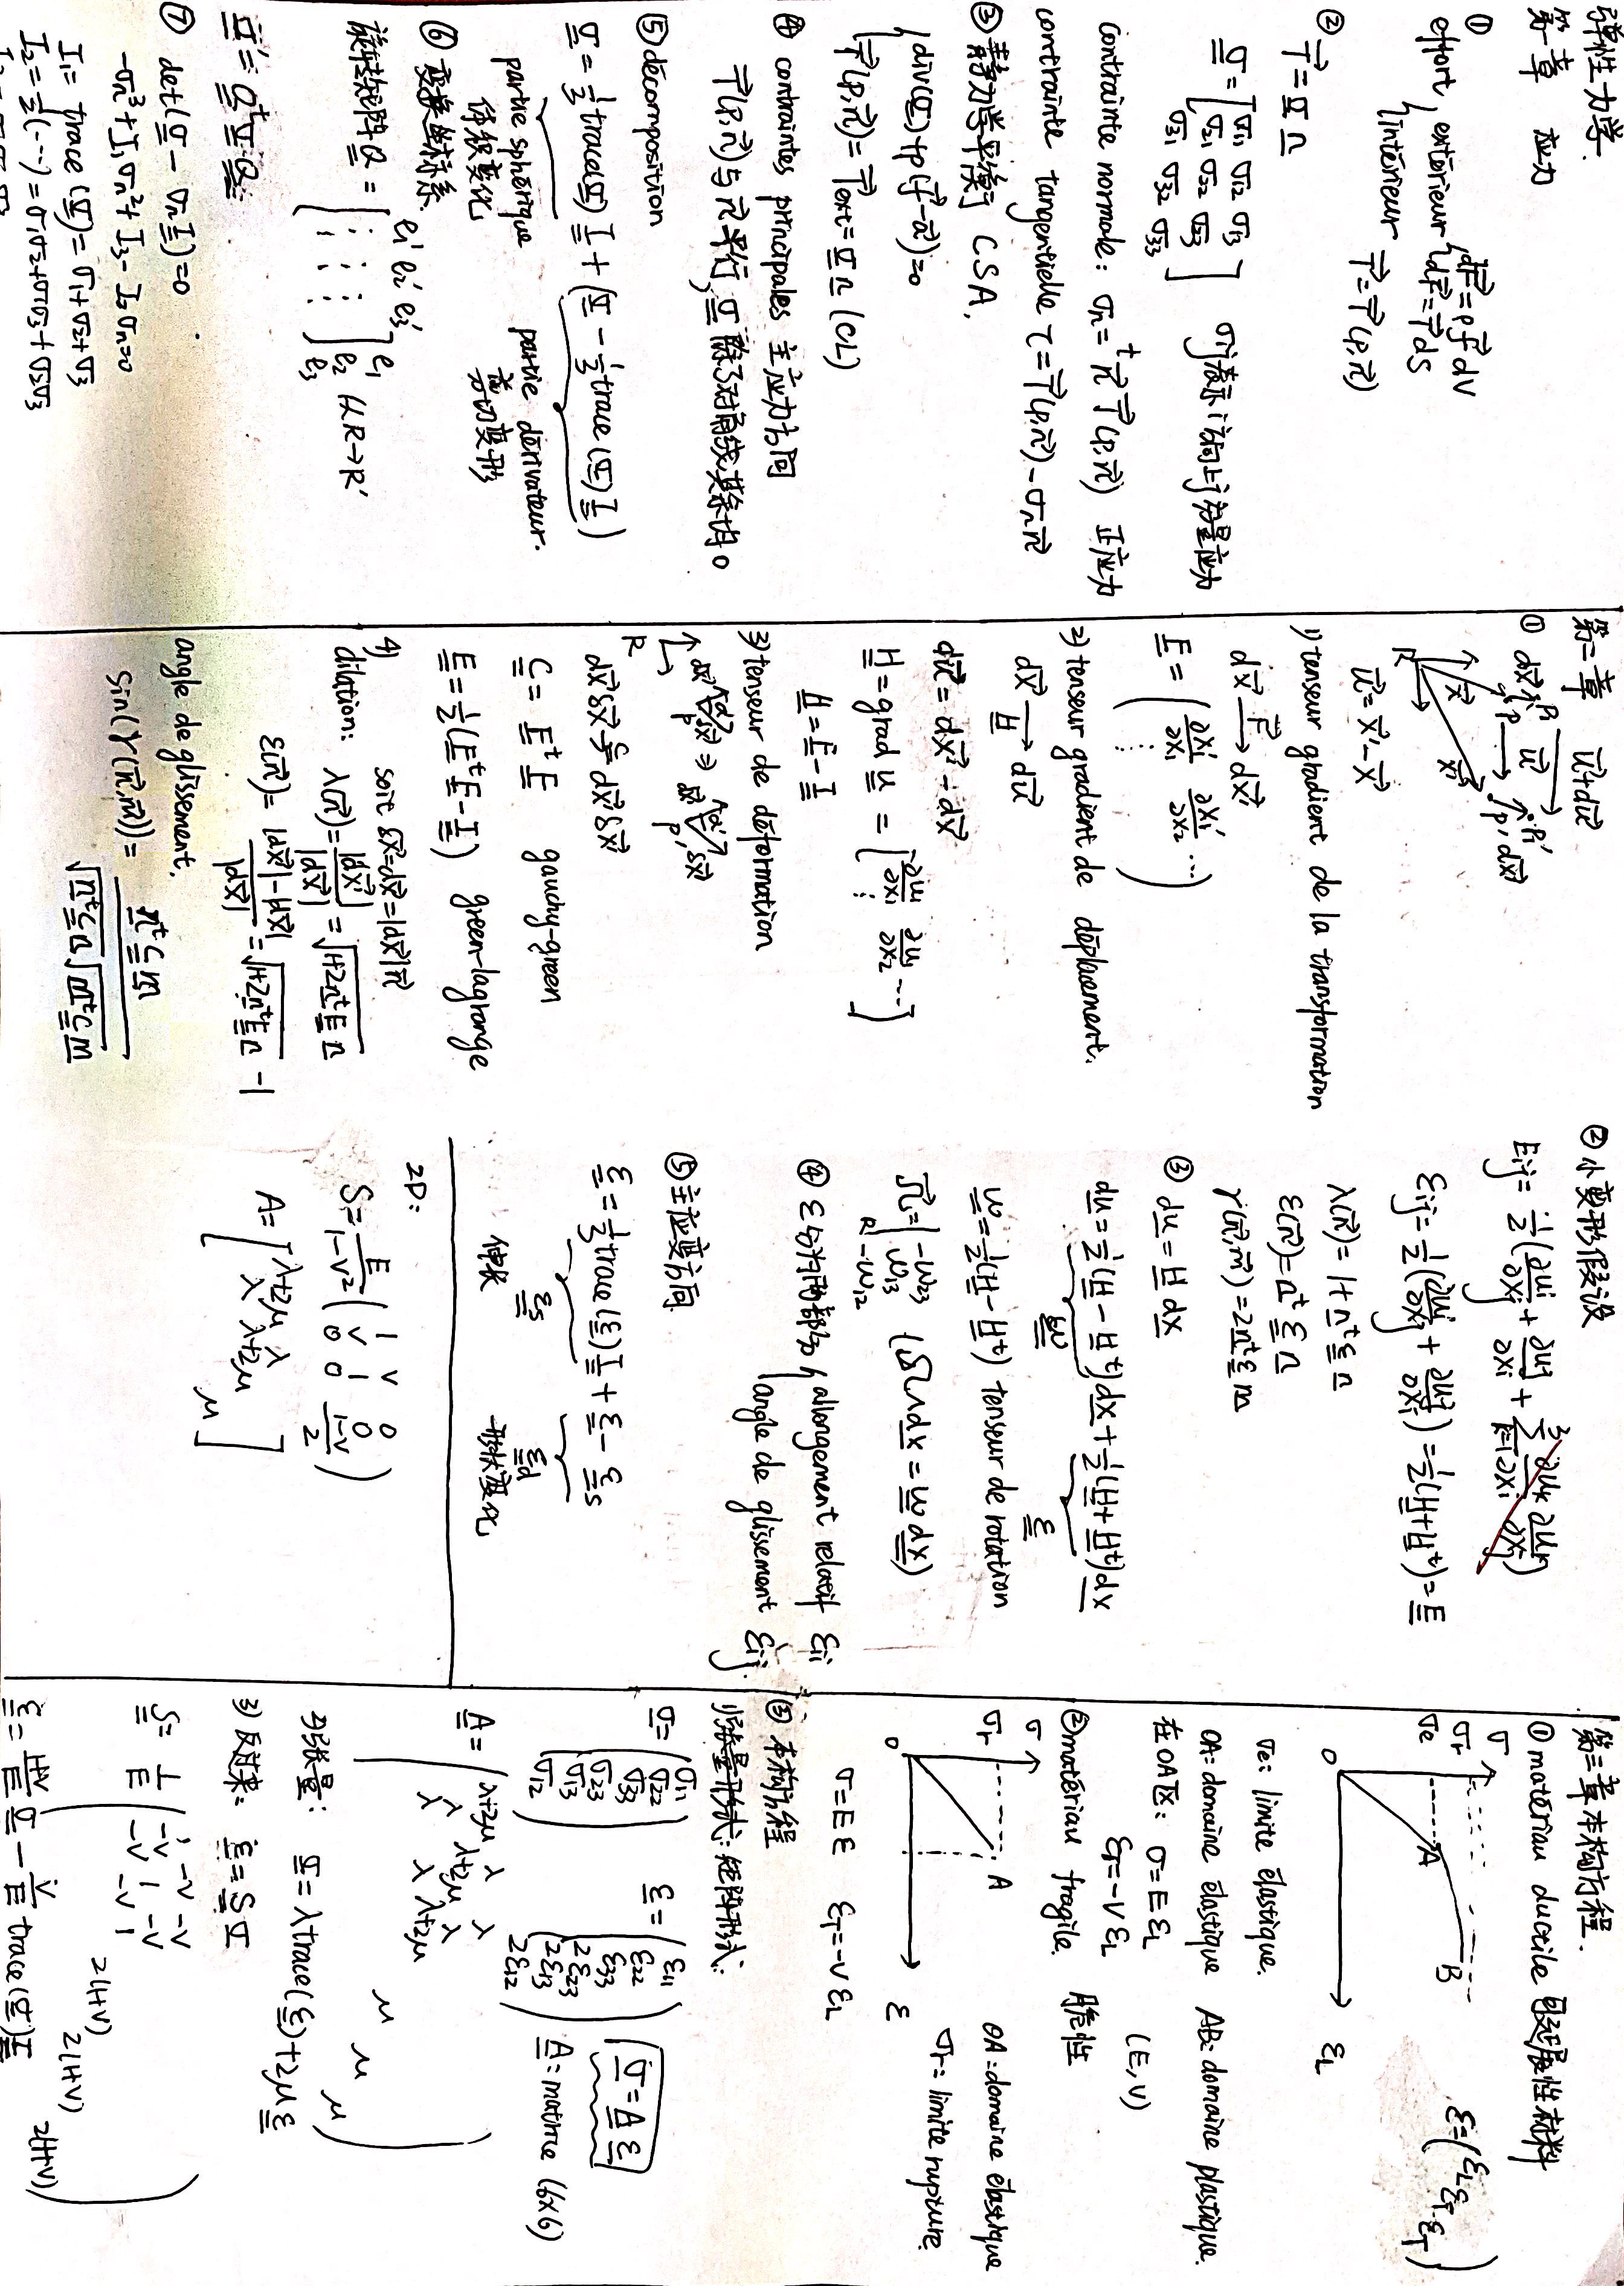 弹性力学.
第一章 应力
①
effort { extérieur { dF⃗ = ρf⃗ dV
dF⃗ = T⃗ dS
intérieur
T⃗ = T⃗(P,n⃗)
②
T⃗ = σ n
σ = [σ11 σ12 σ13
σ21 σ22 σ23
σ31 σ32 σ33]
σij表示i方向上j分量应力
contrainte normale: σn = ᵗn⃗ T⃗(P,n⃗) 正应力
contrainte tangentielle τ = T⃗(P,n⃗) - σn n⃗
③ 静力学平衡 CSA.
{ div(σ)+ρ(f⃗-a⃗)=0
T⃗(P,n⃗) = T⃗ext = σ n (CL)
④ contraintes principales 主应力方向
T⃗(P,n⃗)与n⃗平行, σ 除了对角线其余均0
⑤ décomposition
σ = 1/3 trace(σ) I + (σ - 1/3 trace(σ) I)
partie sphérique partie dérivateur.
体积变化 剪切变形
⑥ 变换坐标系.
e1' e2' e3'
旋转矩阵 Q = [⋮ ⋮ ⋮] e1 e2 e3 从R→R'
σ' = Qᵗ σ Q
⑦ det(σ - σn I)=0
-σn³ + I1σn² + I3 - I2σn=0
I1 = trace(σ) = σ1+σ2+σ3
I2 = 1/2(⋯) = σ1σ2+σ1σ3+σ2σ3
第二章 u⃗+du⃗
① dX⃗ P1 u⃗ P1'
P P' dX⃗'
X⃗ X⃗'
R
u⃗ = X⃗' - X⃗
1) tenseur gradient de la transformation
dX⃗ —F→ dX⃗'
F = (∂X1'/∂X1 ∂X1'/∂X2 ⋯
⋮)
2) tenseur gradient de déplacement.
dX⃗ —H→ du⃗
du⃗ = dX⃗' - dX⃗
H = grad u = [∂u1/∂X1 ∂u1/∂X2 ⋯
⋮]
H = F - I
3) tenseur de déformation
dX⃗ α δX⃗ ⇒ dX⃗' α' δX⃗'
P P'
R
dX⃗ δX⃗ —C→ dX⃗' δX⃗'
C = Fᵗ F gauchy-green
E = 1/2(FᵗF - I) green-lagrange
4) soit δX⃗=dX⃗=|dX⃗|n⃗
dilation: λ(n⃗) = |dX⃗'|/|dX⃗| = √(1+2nᵗ E n)
ε(n⃗) = (|dX⃗'|-|dX⃗|)/|dX⃗| = √(1+2nᵗ E n) - 1
angle de glissement.
sin(γ(n⃗,m⃗)) = nᵗ C m / (√(nᵗ C n) √(mᵗ C m))
② 小变形假设
Eij = 1/2(∂ui/∂Xj + ∂uj/∂Xi + Σ(k=1→3) ∂uk/∂Xi ∂uk/∂Xj)
εij = 1/2(∂ui/∂Xj + ∂uj/∂Xi) = 1/2(H+Hᵗ) = E
λ(n⃗) = 1+nᵗ ε n
ε(n⃗) = nᵗ ε n
γ(n⃗,m⃗) = 2nᵗ ε m
③ du = H dx
du = 1/2(H - Hᵗ)dx + 1/2(H+Hᵗ)dx
ω ε
ω = 1/2(H - Hᵗ) tenseur de rotation
Ω⃗ = | -ω23
ω13
R -ω12
(Ω∧dx = ω dx)
④ ε分为两部分 { allongement relatif εii
angle de glissement εij.
⑤ 主应变方向.
ε = 1/3 trace(ε) I + ε - εs
εs εd
伸长 形状变化
2D:
S = E/(1-ν²) (1 ν 0
ν 1 0
0 0 (1-ν)/2)
A = [λ+2μ λ
λ λ+2μ
μ]
第三章 本构方程.
① matériau ductile 可延展性材料
σ
σr
σe A B
O εL
ε = (εL εT εT)
σe: limite élastique.
OA: domaine élastique AB: domaine plastique.
在OA区: σ = E εL
εT = -ν εL (E, ν)
② matériau fragile. 脆性
σ
σr A
O ε
OA: domaine élastique
σr = limite rupture.
σ = E ε εT = -ν εL
③ 本构方程
1) 张量形式: 矩阵形式:
σ = (σ11 σ22 σ33 σ23 σ13 σ12)
ε = (ε11 ε22 ε33 2ε23 2ε13 2ε12)
σ = A ε
A = matrice (6×6)
A = (λ+2μ λ λ
λ λ+2μ λ
λ λ λ+2μ
μ
μ
μ)
2) 张量: σ = λ trace(ε) + 2μ ε
3) 反过来: ε = S σ
S = 1/E (1 -ν -ν
-ν 1 -ν
-ν -ν 1
2(1+ν)
2(1+ν)
2(1+ν))
ε = (1+ν)/E σ - ν/E trace(σ) I